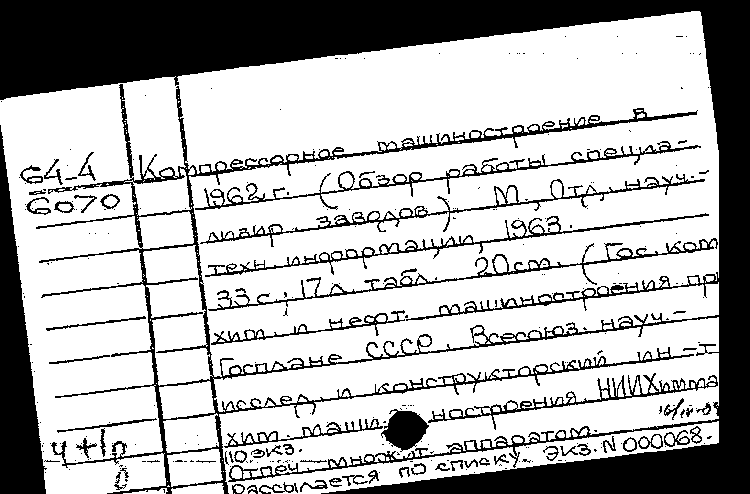 64-4 Компрессорное машиностроение в
6070 1962 г. (Обзор работы специа-
лизир. заводов). М., Отд. науч.-
техн. информации, 1963.
33 с.; 17 л. табл. 20 см. (Гос. ком
хим. и нефт. машиностроения при
Госплане СССР. Всесоюз. науч.-
исслед. и конструкторский ин-т
хим. машиностроения НИИХимма
10 экз.
Отпеч. множит. аппаратом.
Рассылается по списку. Экз. N 000068.